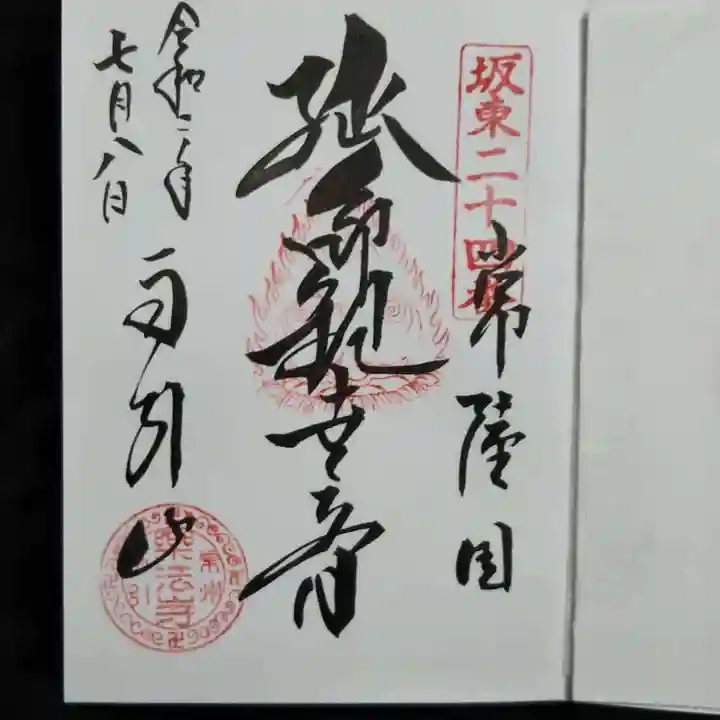 坂東二十四番
常陸国
延命観世音
令和二年
七月八日
雨引山
常州
樂法寺